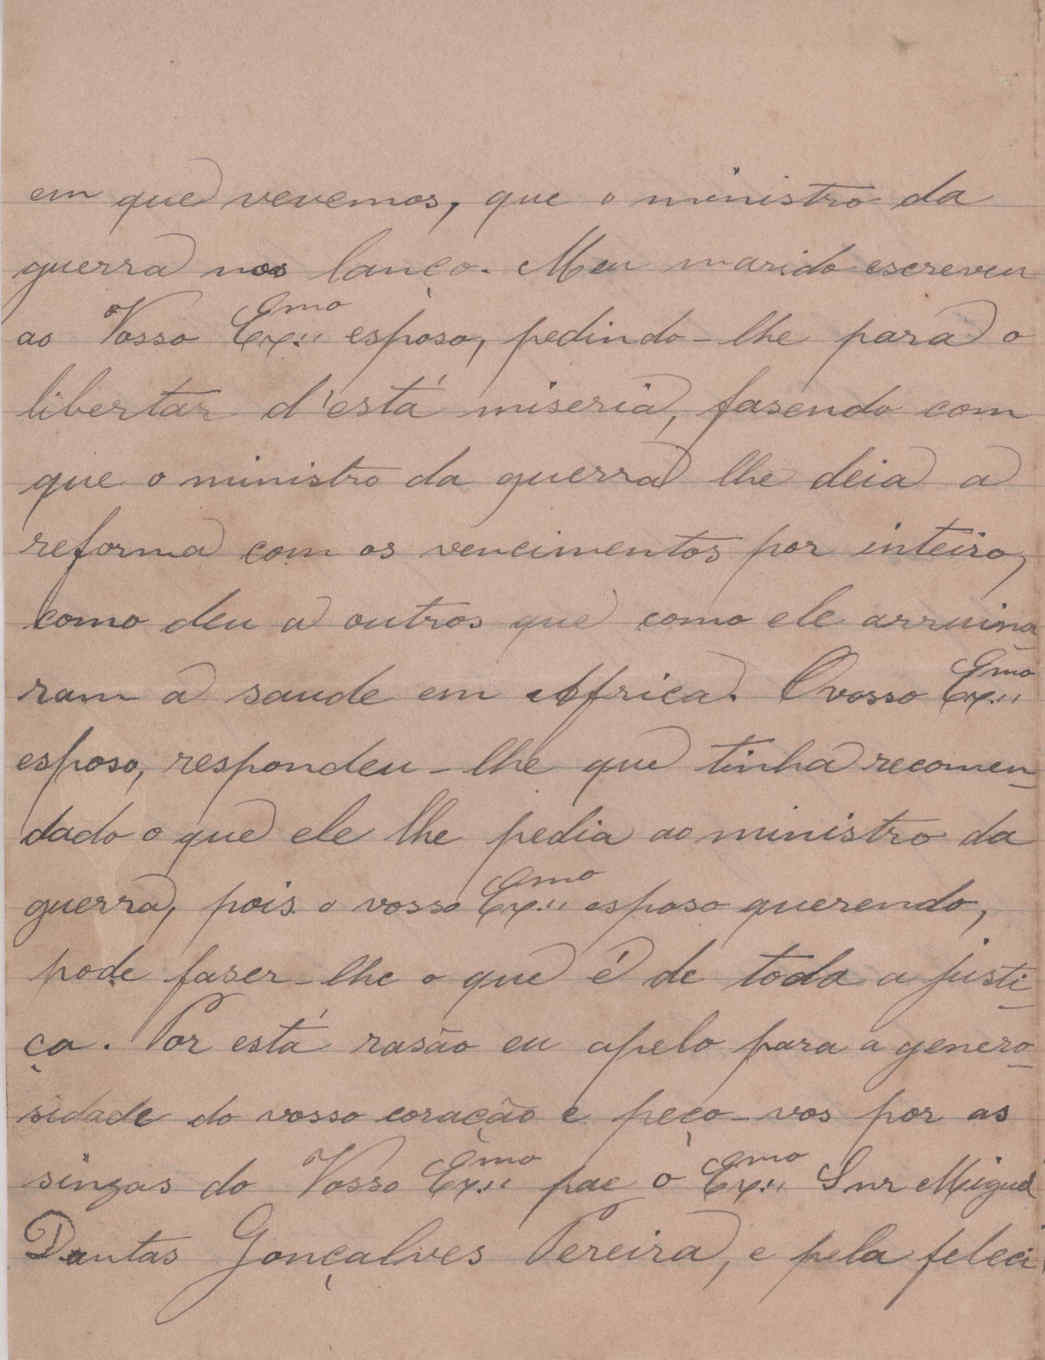 em que vevemos, que o ministro da
guerra nos lanço. Meu marido escreveu
ao Vosso Ex.mo esposo, pedindo-lhe para o
libertar d'está miseria, fasendo com
que o ministro da guerra lhe deia a
reforma com os vencimentos por inteiro,
como deu a outros que como ele arruina
ram a saude em Africa. O vosso Ex.mo
esposo, respondeu-lhe que tinha recomen-
dado o que ele lhe pedia ao ministro da
guerra, pois o vosso Ex.mo esposo querendo,
pode faser-lhe o que é de toda a justi-
ça. Por está rasão eu apelo para a genero-
sidade do vosso coração e peço-vos por as
sinzas do Vosso Ex.mo pae o Ex.mo Snr Miguel
Dantas Gonçalves Pereira, e pela feleci